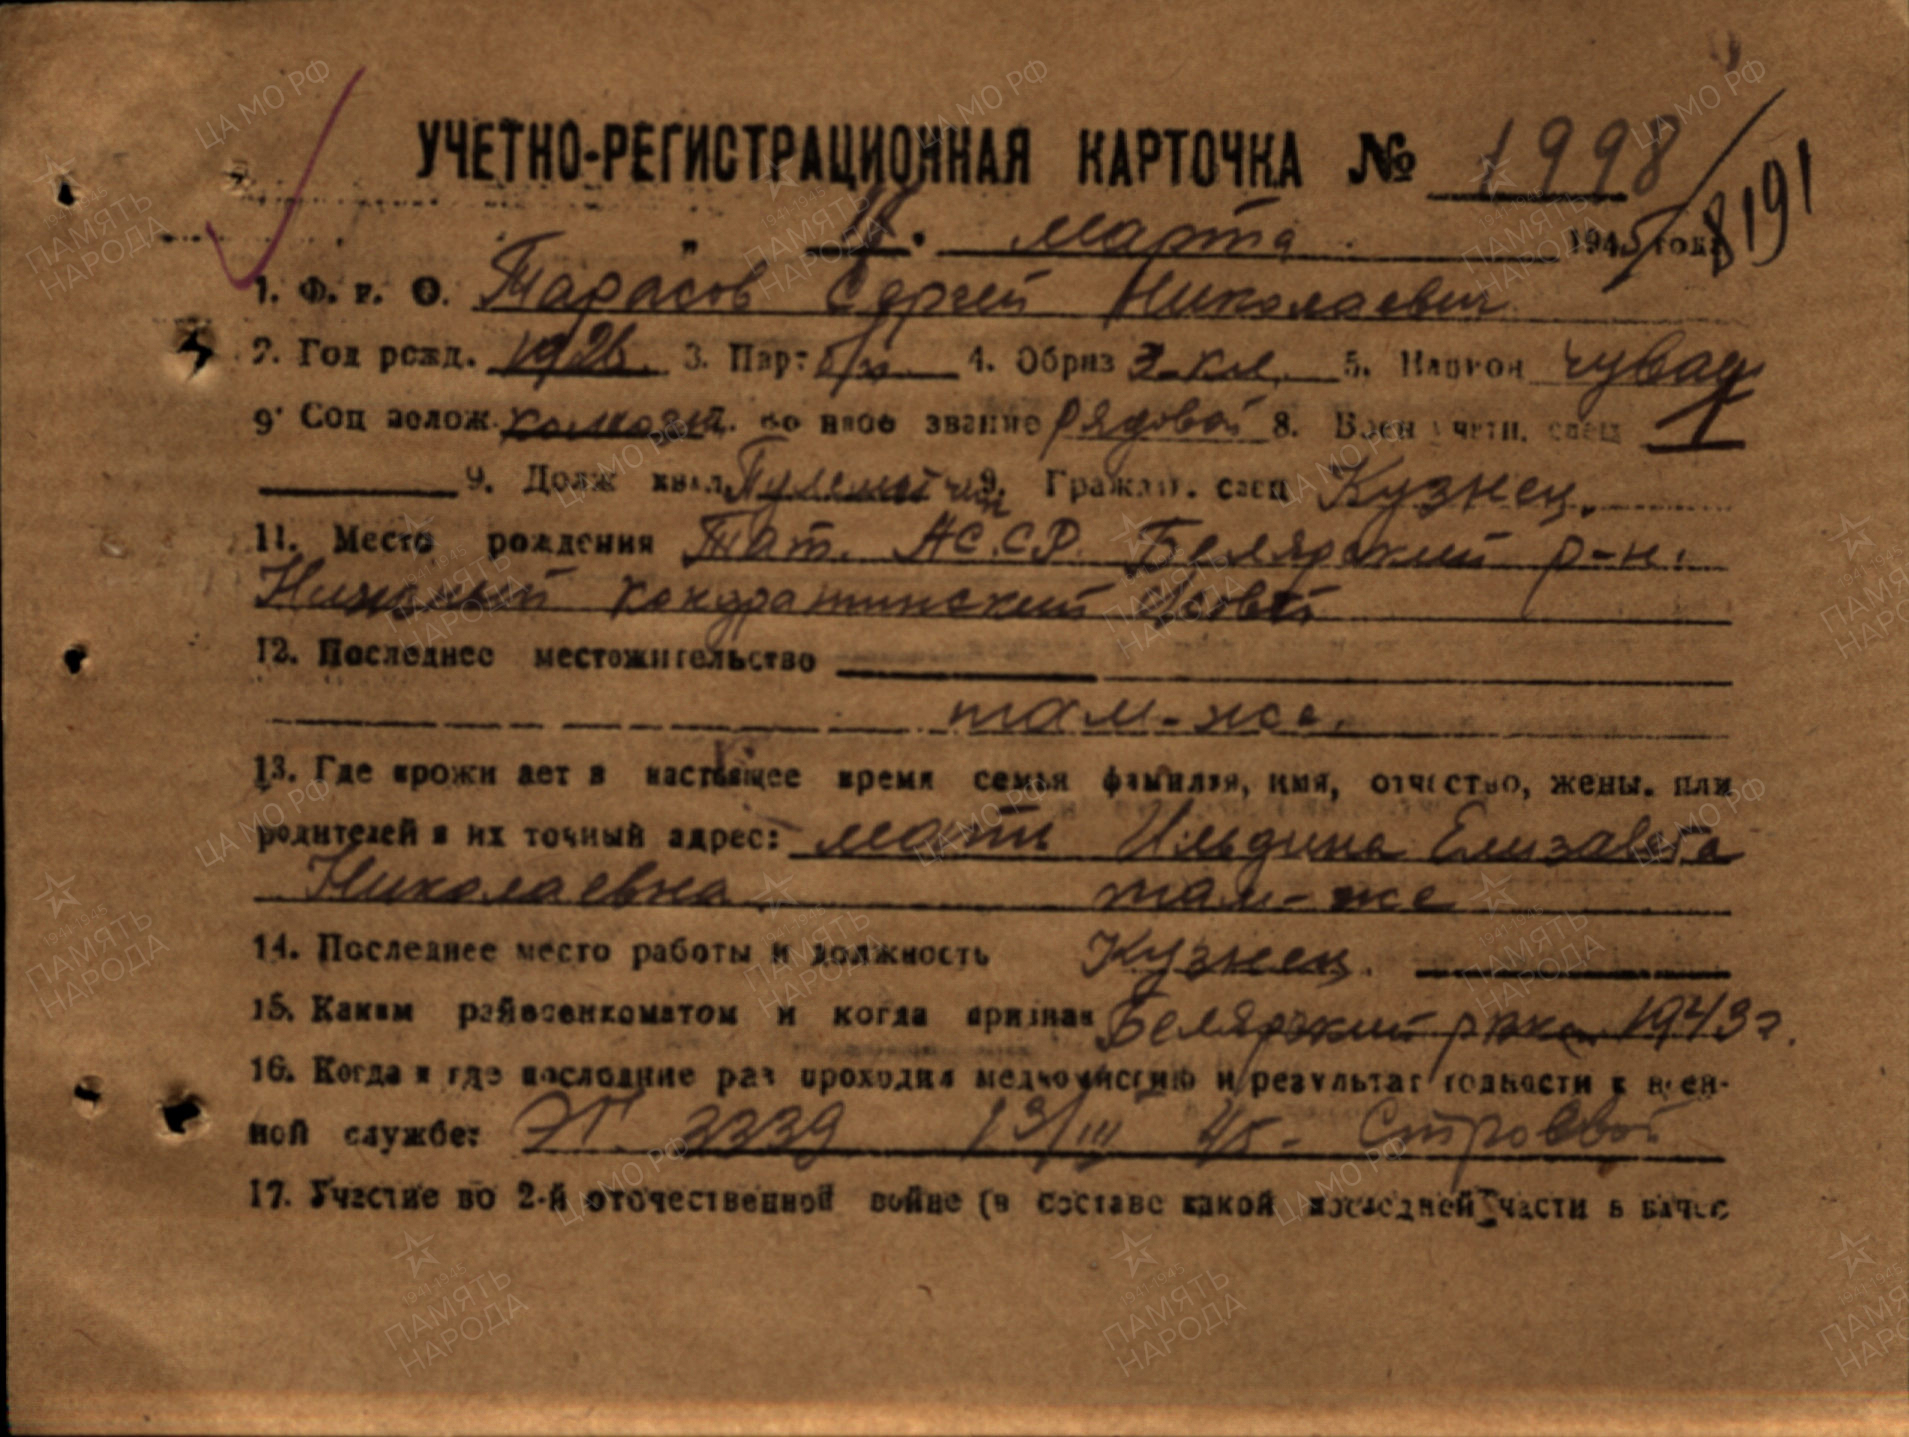 УЧЕТНО-РЕГИСТРАЦИОННАЯ КАРТОЧКА № 1998/8191
" 18. " марта 1945 года
1. Ф. и. О. Тарасов Сергей Николаевич
2. Год рожд. 1926. 3. Парт б/п. 4. Образ 3-кл. 5. Национ чуваш
9 Соц полож. колхозн. во нное звание рядовой 8. Воен учетн. спец 1
9. Долж квал. Пулеметчик 9. Граждан. спец Кузнец.
11. Место рождения Тат. АС.С.Р. Белярский р-н.
Нижный Кондратинский
12. Последнее местожительство
там-же.
13. Где прожи ает в настоящее время семья фамилия, имя, отчество, жены. или
родителей и их точный адрес: мать Ильдина Елизавета
Николаевна там-же
14. Последнее место работы и должность Кузнец.
15. Каким райвоенкоматом и когда призван Белярский рвком 1943 г.
16. Когда и где последние раз проходил медкомиссию и результат годности к воен-
ной службе: ЭГ. 3339 13/III 45 - Строевой
17. Участие во 2-й оточественной войне (в составе какой последней части в качес
ЦА МО РФ
ПАМЯТЬ НАРОДА
1941-1945